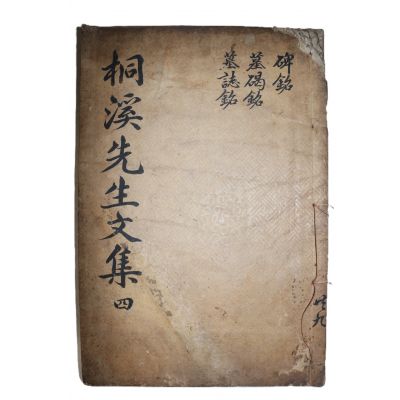 共九
碑銘
墓碣銘
墓誌銘
桐溪先生文集 四